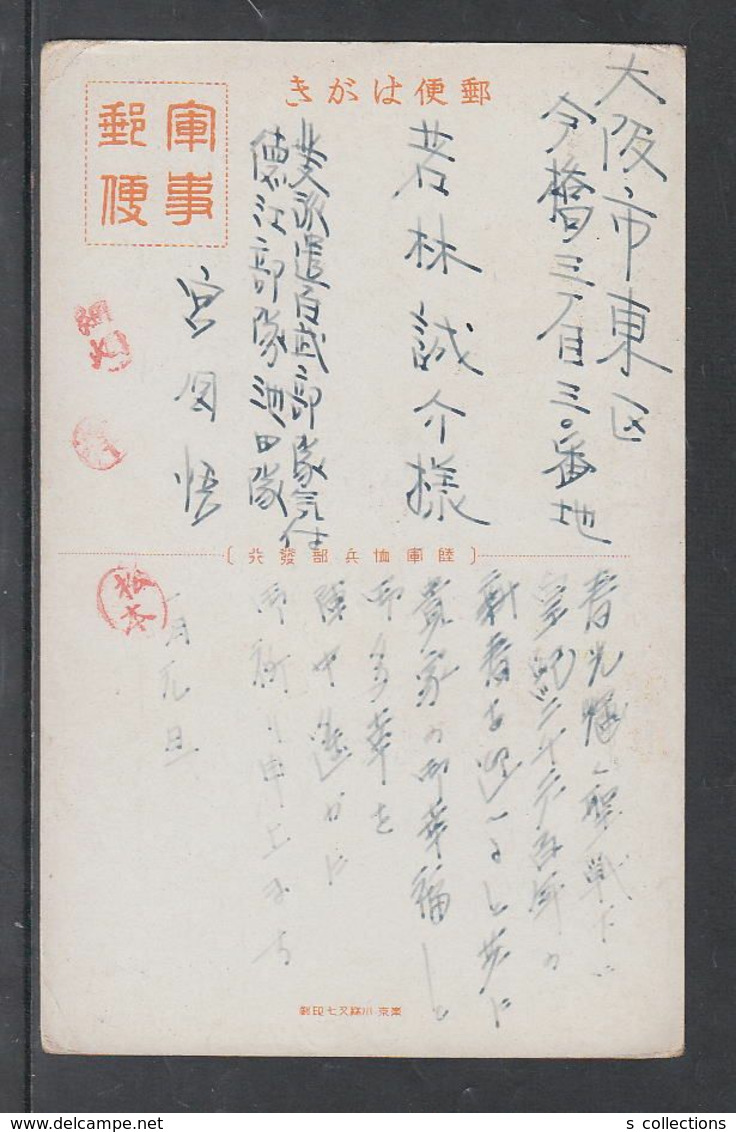 郵便はがき
軍事
郵便
大阪市東区
今橋三丁目三〇番地
若林誠介様
北支派遣百武部隊気付
徳江部隊池田隊
宮田悟
〔陸軍恤兵部發行〕
春光輝く聖戦下に
皇紀二千六百年の
新春を迎へると共に
貴家の御幸福と
御多幸を
陣中遥かに
御祈り申上ます
一月元旦
松本
東京・小林又七印刷
s collections